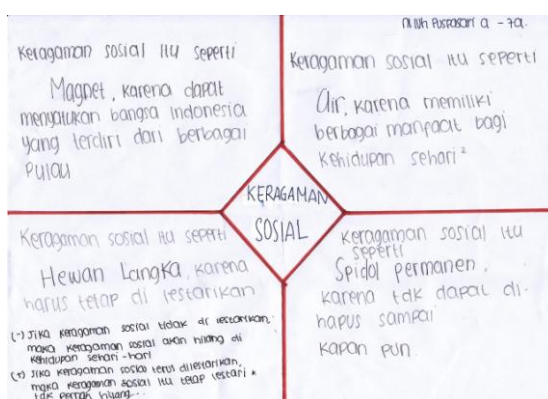 Ni Luh Puspasari a - 7a.
Keragaman sosial itu seperti
Magnet, karena dapat
menyatukan bangsa Indonesia
yang terdiri dari berbagai
pulau
Keragaman sosial itu seperti
Air, karena memiliki
berbagai manfaat bagi
kehidupan sehari²
KERAGAMAN
SOSIAL
Keragaman sosial itu seperti
Hewan Langka, karena
harus tetap di lestarikan
(-) Jika keragaman sosial tidak di lestarikan.
maka keragaman sosial akan hilang di
kehidupan sehari-hari
(+) Jika keragaman sosial terus dilestarikan,
maka keragaman sosial itu tetap lestari &
tdk pernah hilang...
keragaman sosial itu
seperti
Spidol permanen,
karena tdk dapat di-
hapus sampai
kapan pun.